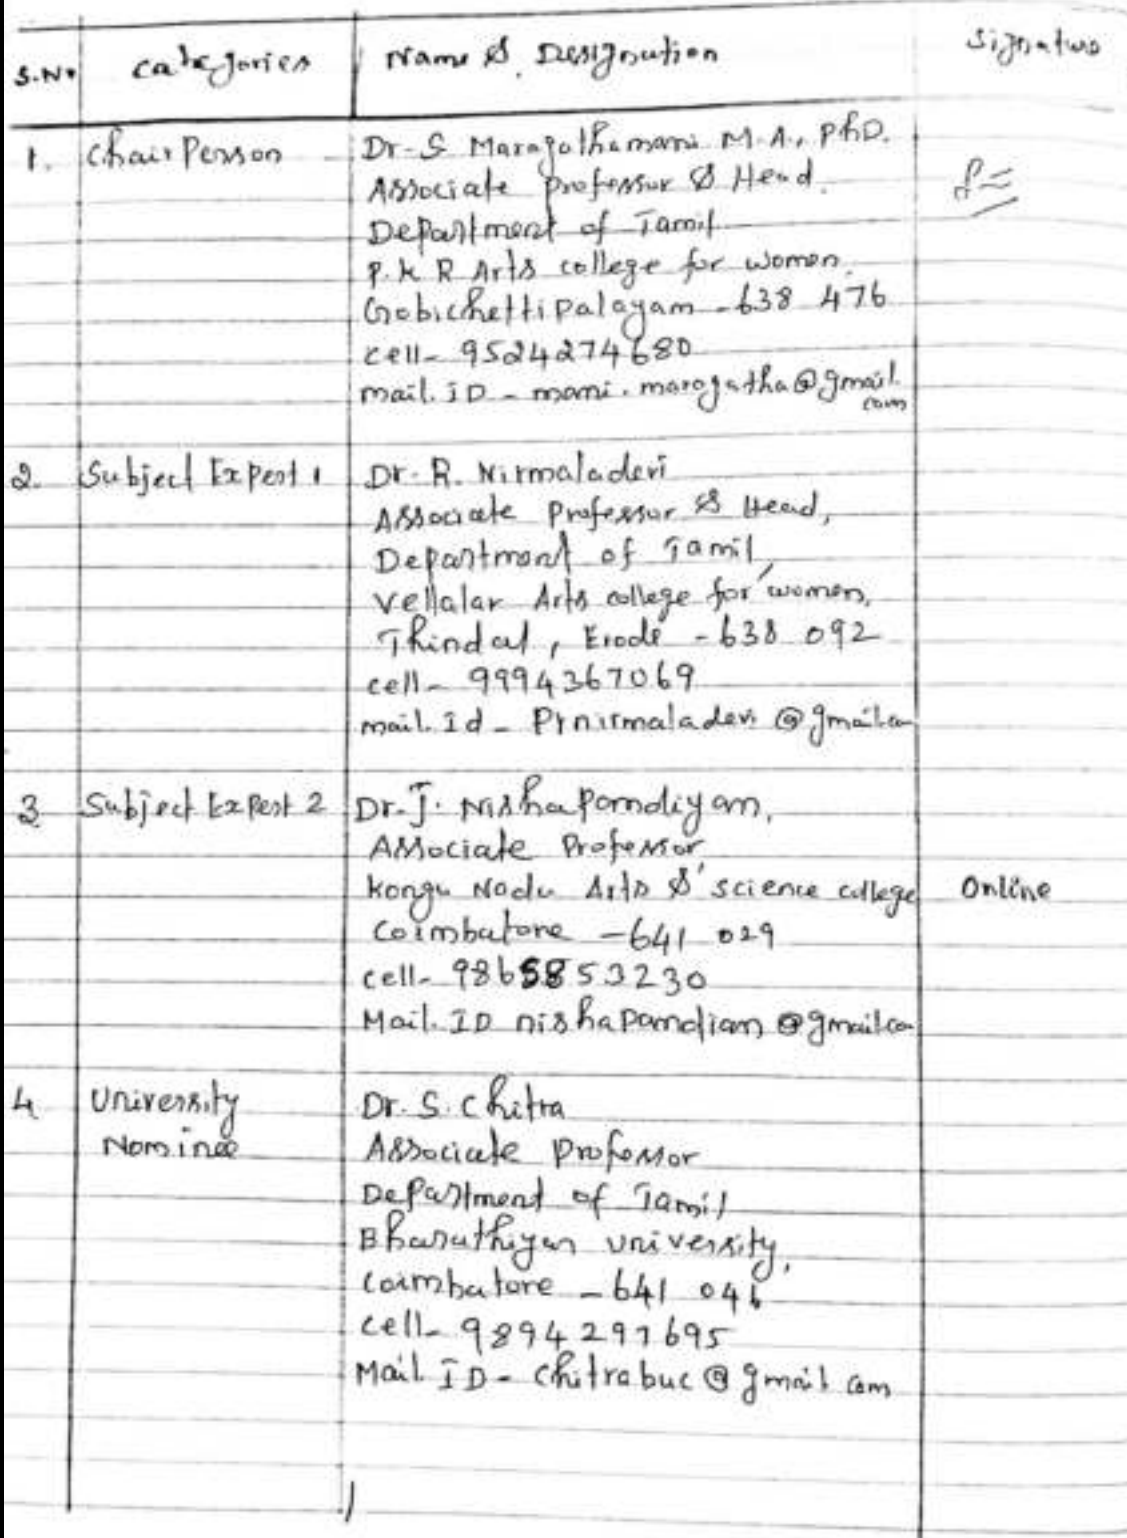 S.No Categories Name & Designation Signature
1. Chair Person Dr. S Maragathamani M.A., PhD.
Associate professor & Head.
Department of Tamil
P.K R Arts college for women.
Gobichettipalayam - 638 476
cell - 9524274680
mail. ID - mani.maragatha@gmail.
com
2. Subject Expert 1 Dr. R. Nirmaladevi
Associate Professor & Head,
Department of Tamil,
Vellalar Arts college for women,
Thindal, Erode - 638 092
cell - 9994367069
mail. Id - Prnirmaladevi @gmail.com
3 Subject Expert 2 Dr. J. Nishapandiyan,
Associate Professor,
kongu Nadu Arts & science college Online
Coimbatore - 641 029
cell - 9865853230
Mail. ID nishapandian @gmail.com
4 University Dr. S. Chitra
Nominee Associate professor
Department of Tamil
Bharathiyar University,
Coimbatore - 641 046
cell - 9894297695
Mail ID - Chitrabuc@gmail com